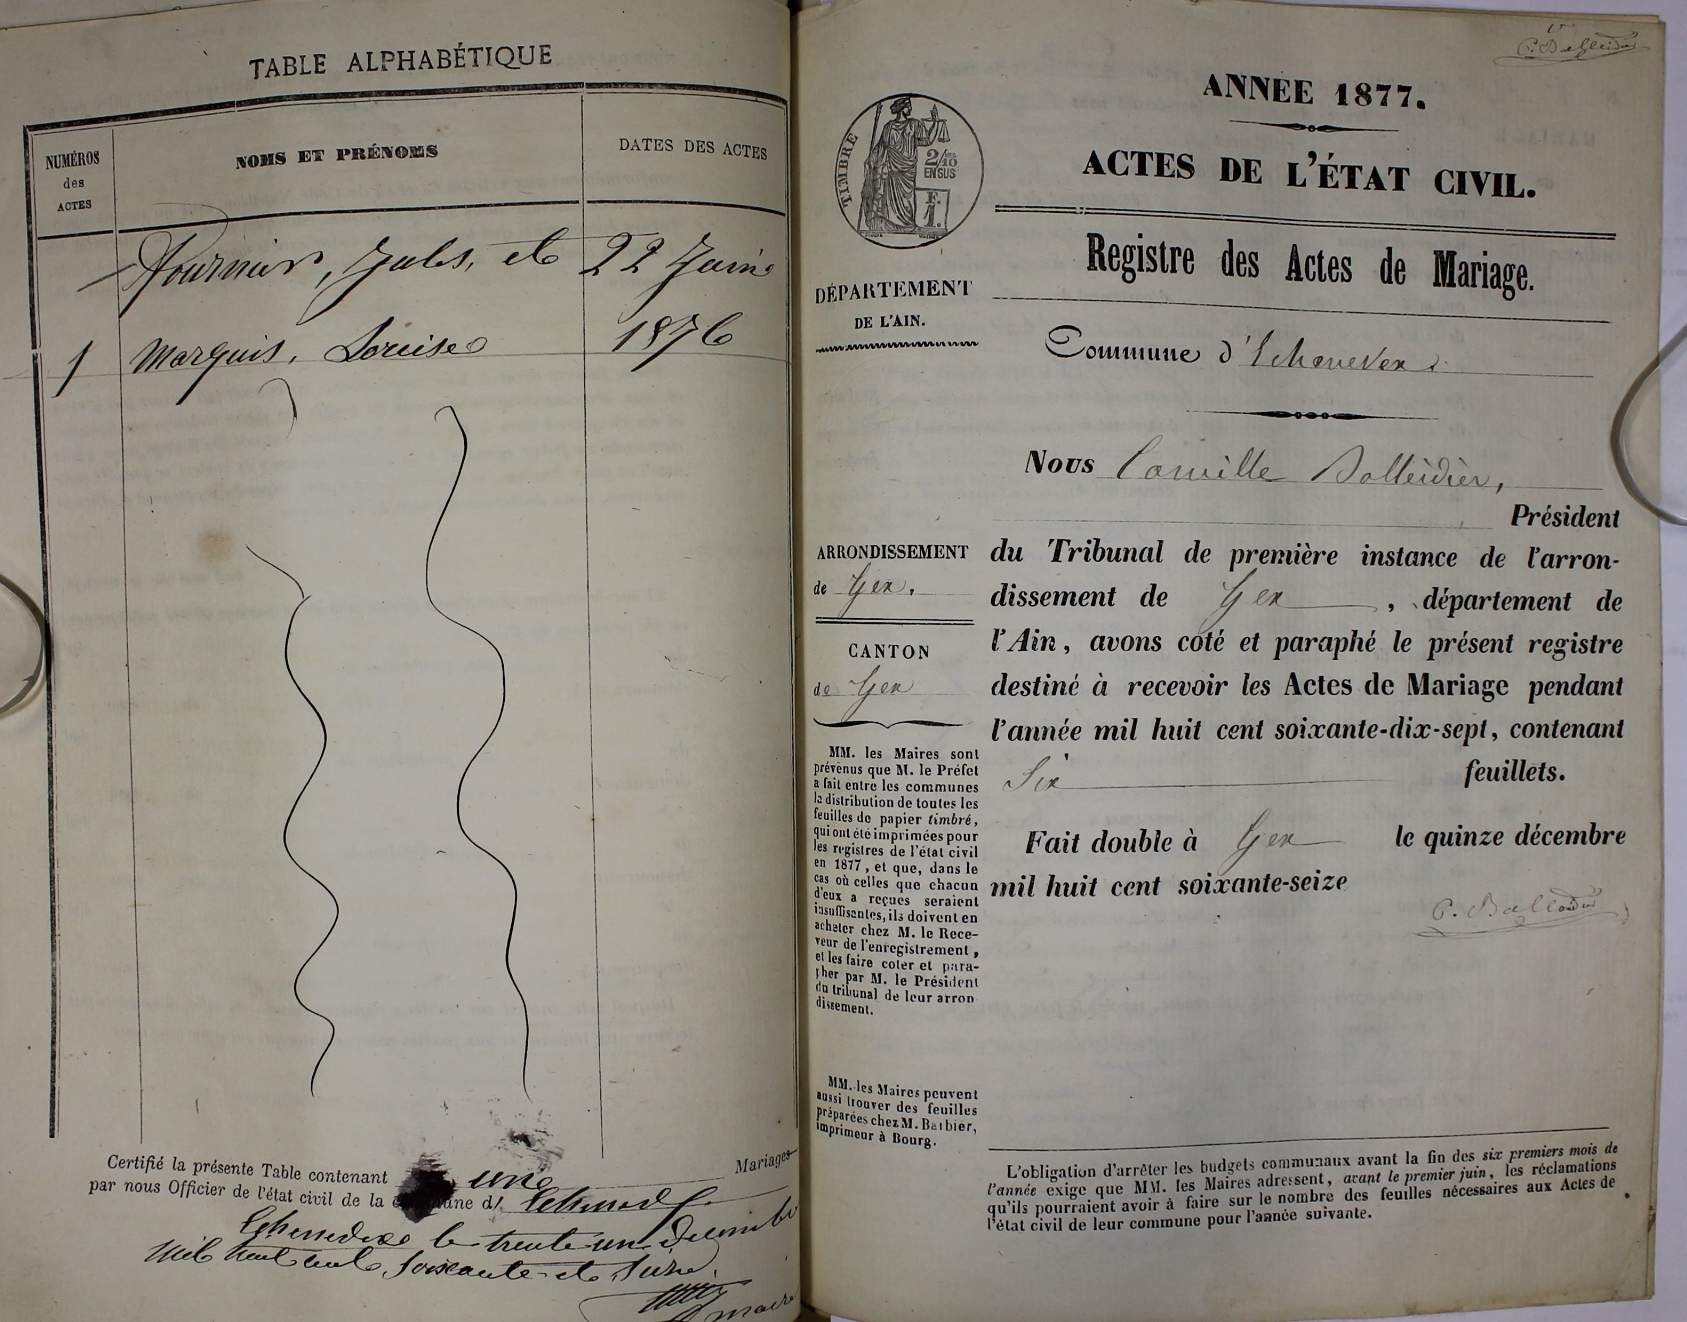 TABLE ALPHABÉTIQUE
NUMÉROS
des
ACTES
NOMS ET PRÉNOMS
DATES DES ACTES
Fournier, Jules, et
22 Juin
1
Marquis, Louise
1876
Certifié la présente Table contenant une Mariages
par nous Officier de l'état civil de la commune d'
le trente un décembre
mil huit cent soixante et seize
maire
ANNÉE 1877.
ACTES DE L'ÉTAT CIVIL.
Registre des Actes de Mariage.
TIMBRE
2/10
EN SUS
F.
1.
DÉPARTEMENT
DE L'AIN.
Commune d'Echenevex
Nous Camille Balleidier,
Président
du Tribunal de première instance de l'arron-
dissement de Gex, département de
l'Ain, avons coté et paraphé le présent registre
destiné à recevoir les Actes de Mariage pendant
l'année mil huit cent soixante-dix-sept, contenant
Six feuillets.
Fait double à Gex le quinze décembre
mil huit cent soixante-seize
C. Balleidier
ARRONDISSEMENT
de Gex.
CANTON
de Gex
MM. les Maires sont
prévenus que M. le Préfet
a fait entre les communes
la distribution de toutes les
feuilles de papier timbré,
qui ont été imprimées pour
les registres de l'état civil
en 1877, et que, dans le
cas où celles que chacun
d'eux a reçues seraient
insuffisantes, ils doivent en
acheter chez M. le Rece-
veur de l'enregistrement,
et les faire coter et para-
pher par M. le Président
du tribunal de leur arron
dissement.
MM. les Maires peuvent
aussi trouver des feuilles
préparées chez M. Barbier,
imprimeur à Bourg.
L'obligation d'arrêter les budgets communaux avant la fin des six premiers mois de
l'année exige que MM. les Maires adressent, avant le premier juin, les réclamations
qu'ils pourraient avoir à faire sur le nombre des feuilles nécessaires aux Actes de
l'état civil de leur commune pour l'année suivante.